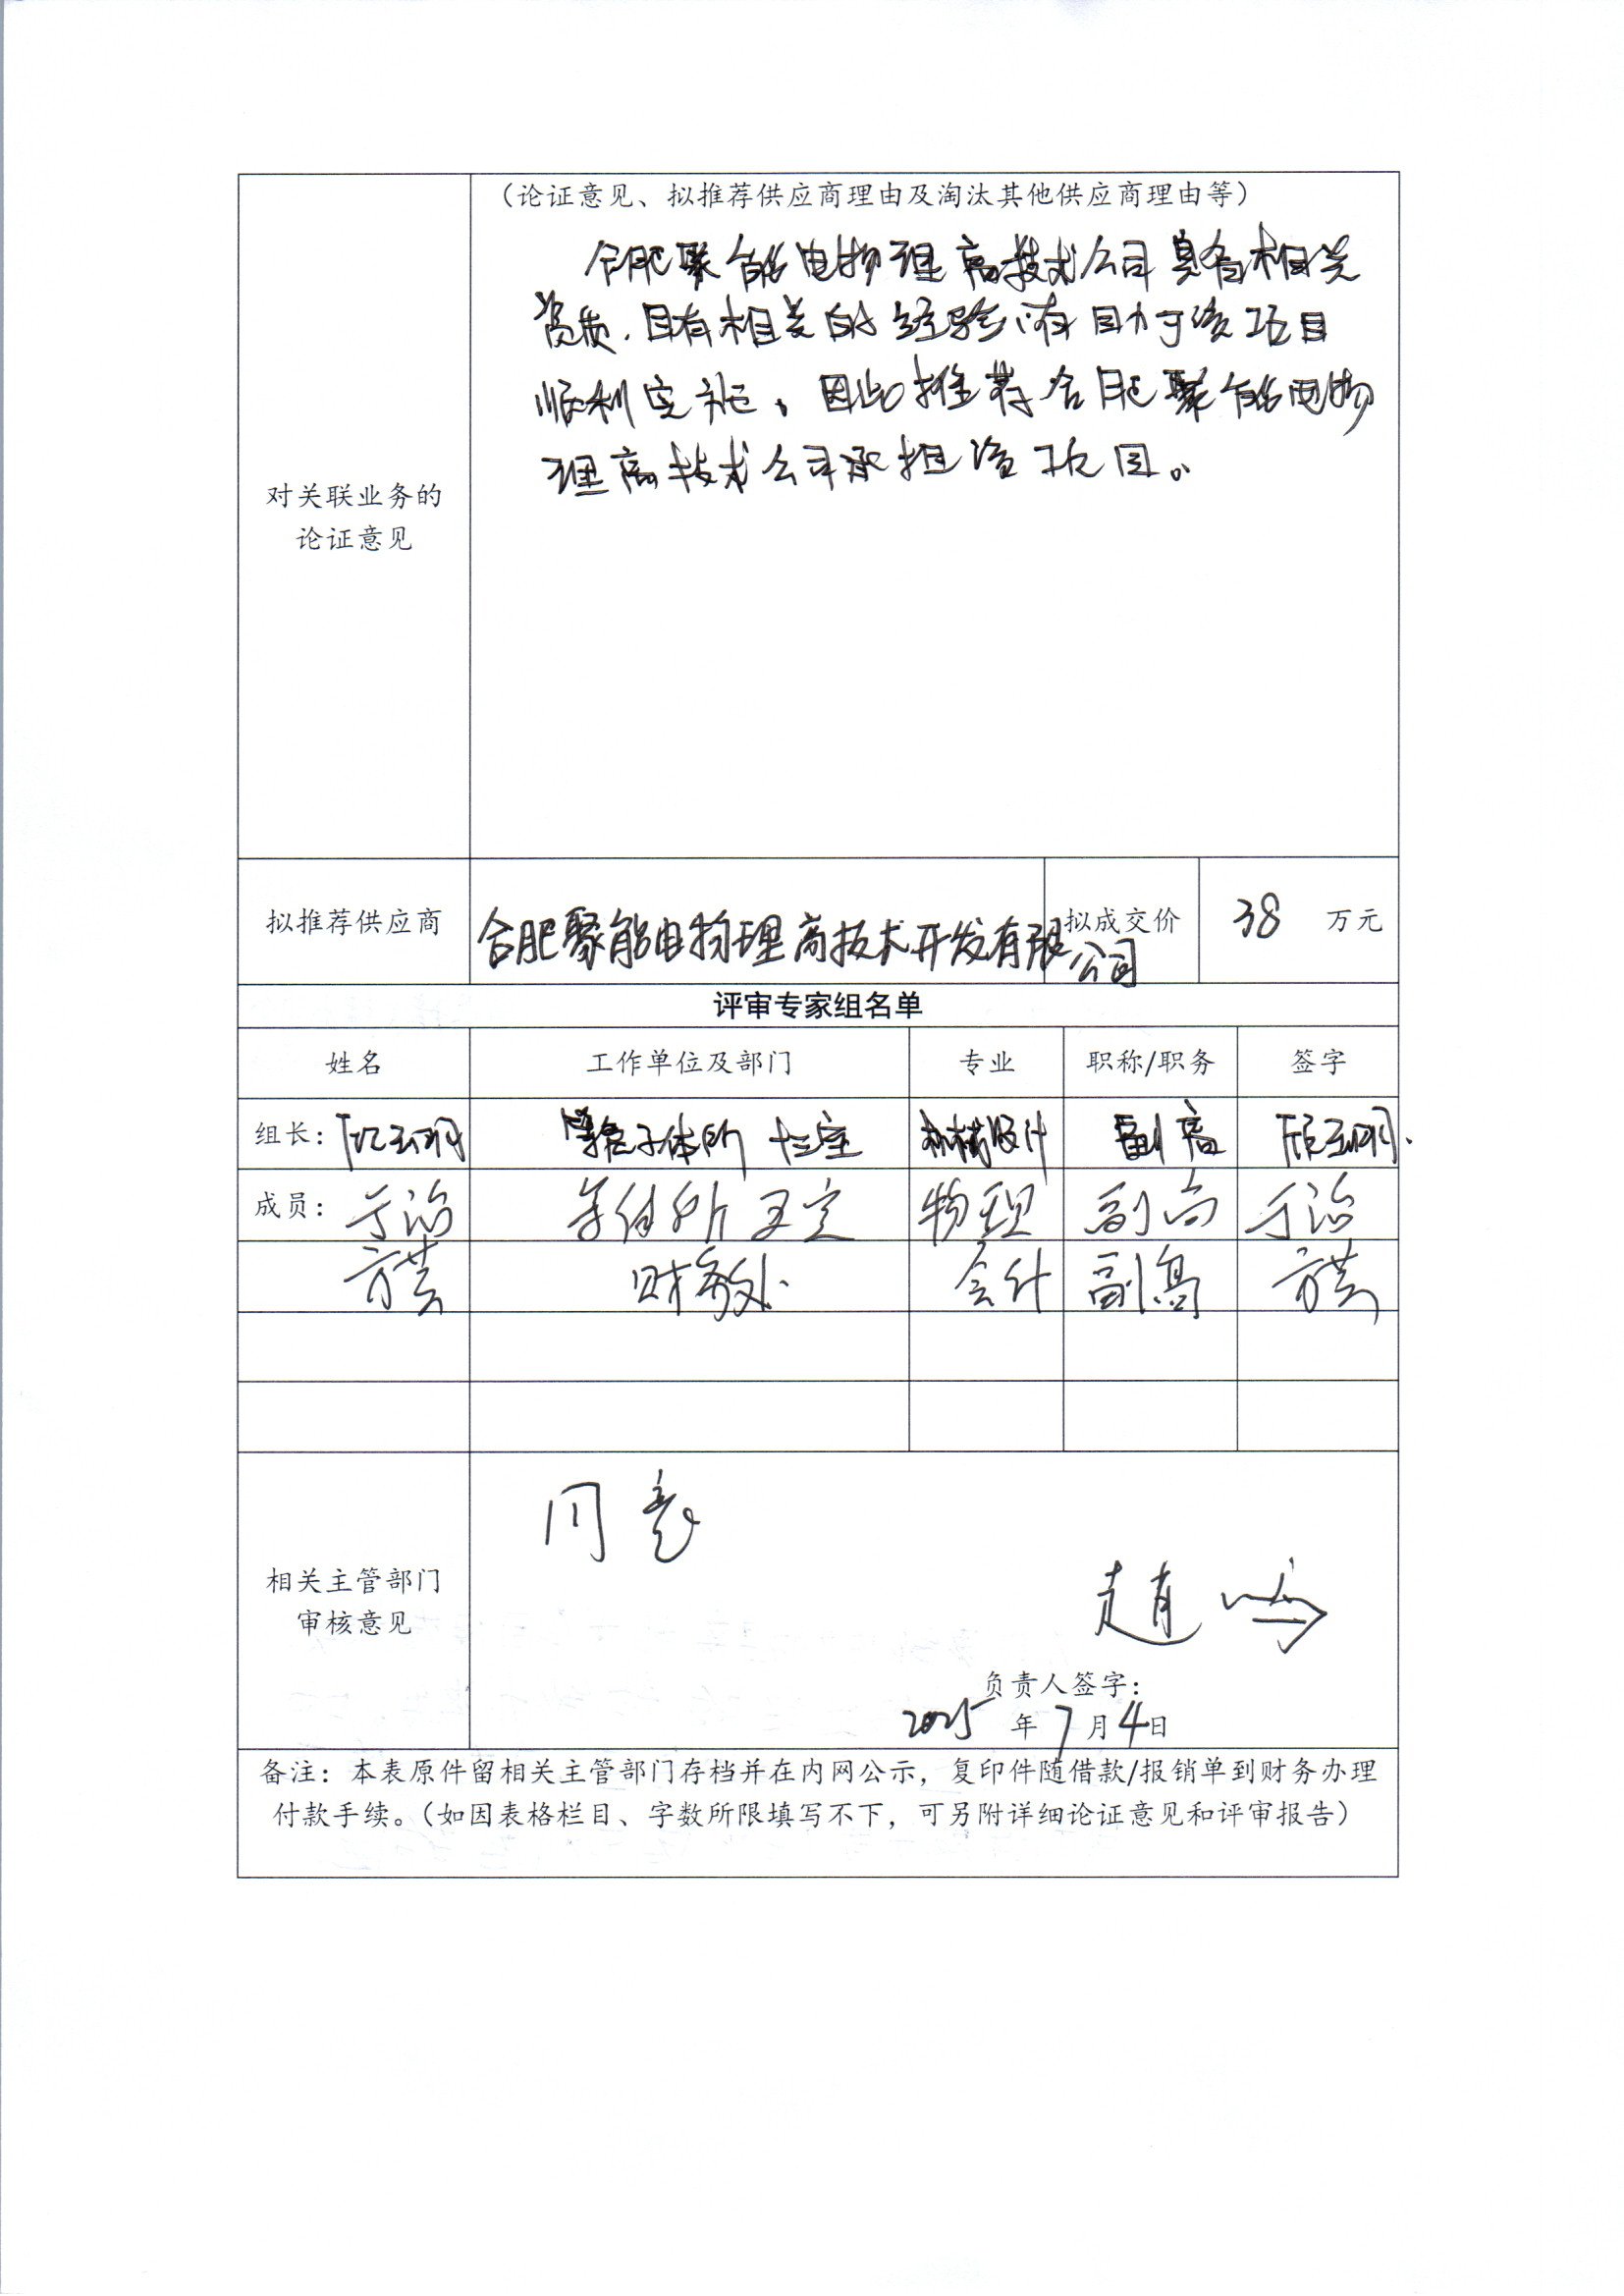 （论证意见、拟推荐供应商理由及淘汰其他供应商理由等）
合肥聚能电物理高技术公司具备相关
资质，具有相关的经验，有助于该项目
顺利实施。因此推荐合肥聚能电物
理高技术公司承担该项目。
对关联业务的
论证意见
拟推荐供应商 合肥聚能电物理高技术开发有限公司 拟成交价 38 万元
评审专家组名单
姓名 工作单位及部门 专业 职称/职务 签字
组长： 等离子体所 十二室 机械设计 副高
成员： 于治 等体所 五室 物理 副高 于治
方芸 财务处 会计 副高 方芸
同意
相关主管部门
审核意见
赵鸣
负责人签字：
2025 年 7 月 4 日
备注：本表原件留相关主管部门存档并在内网公示，复印件随借款/报销单到财务办理
付款手续。（如因表格栏目、字数所限填写不下，可另附详细论证意见和评审报告）